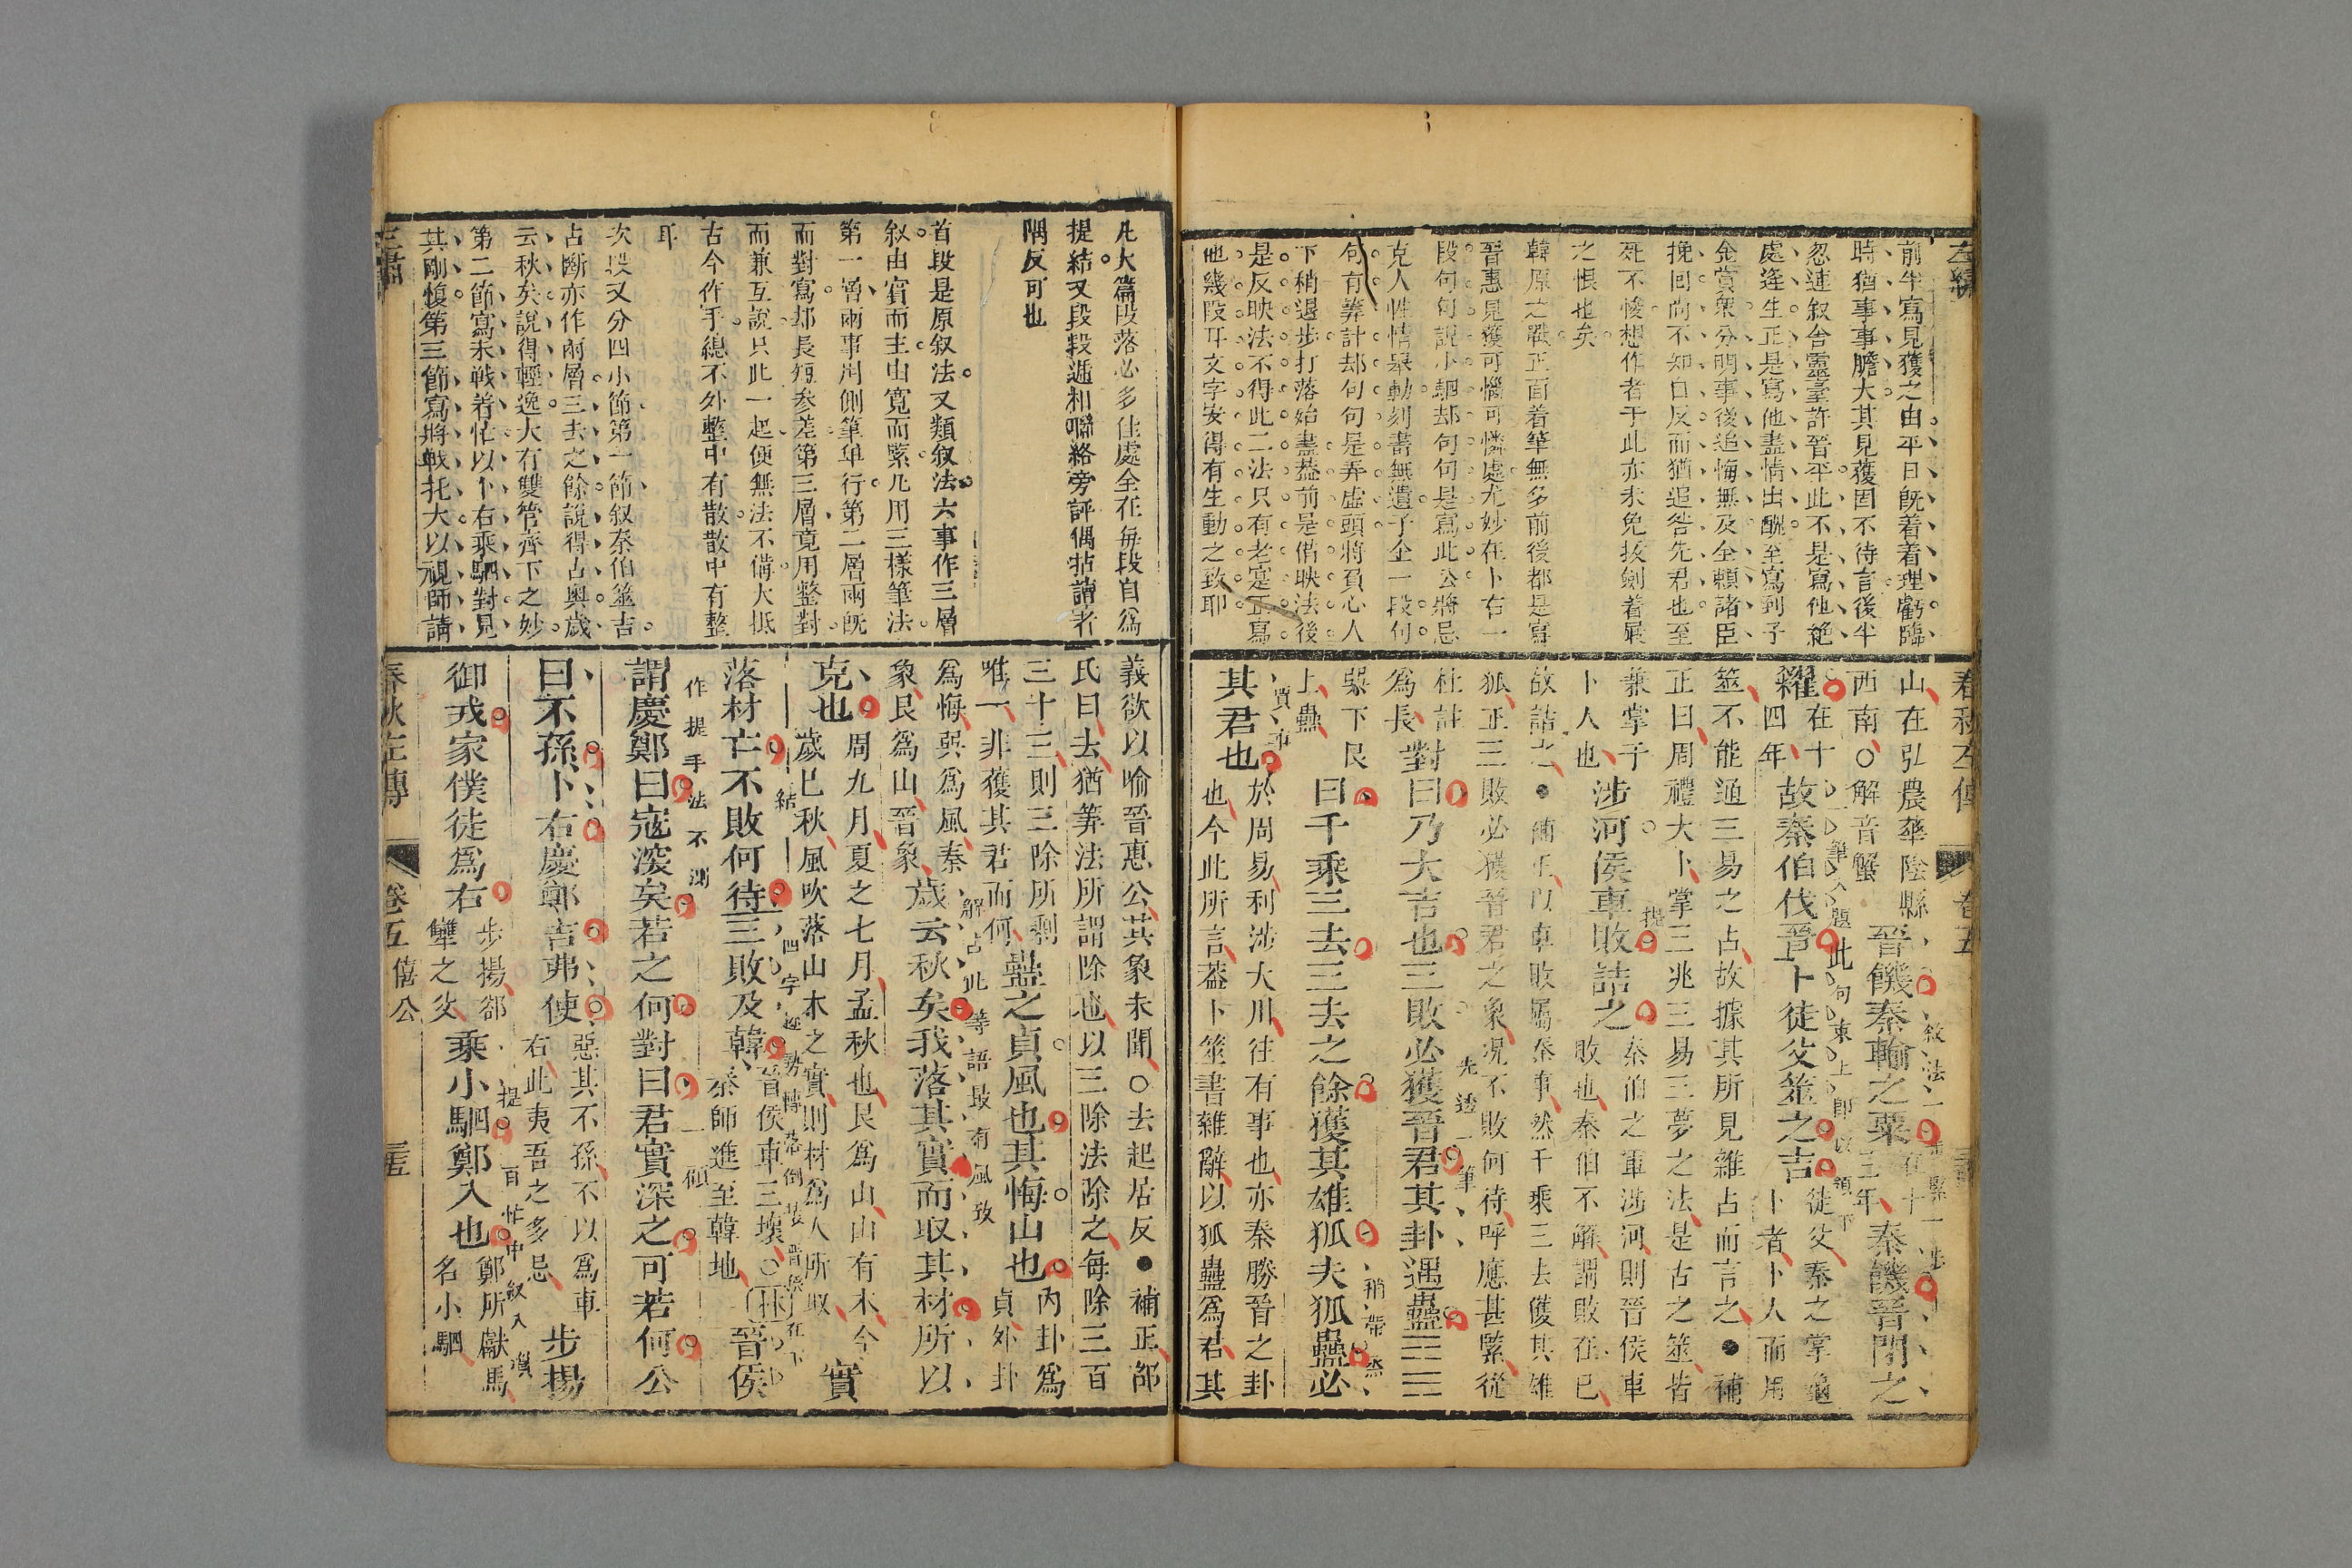 左繡
前半寫見獲之由平日旣着着理虧臨
時猶事事膽大其見獲固不待言後半
忽連叙舍靈臺許晉平此不是寫他絕
處逢生正是寫他盡情出醜至寫到子
金賞衆分明事後追悔無及全賴諸臣
挽回尚不知自反而猶追咎先君也至
死不悛想作者于此亦未免拔劍着屐
之恨也矣
韓原之戰正面着筆無多前後都是寫
晉惠見獲可惱可憐處尤妙在卜右一
段句句說小駟却句句是寫此公將忌
克人性情舉動刻畵無遺子金一段句
句有筭計却句句是弄虛頭將負心人
下稍退步打落始盡葢前是借映法後
是反映法不得此二法只有老寔正寫
他幾段耳文字安得有生動之致耶
春秋左傳 卷五
山在弘農華陰縣
西南○解音蟹
晉饑秦輸之粟
在十
三年
秦饑晉閉之
糴
在十
四年
故秦伯伐晉卜徒父筮之吉
徒父秦之掌龜
卜者卜人而用
筮不能通三易之占故據其所見雜占而言之●補
正曰周禮大卜掌三兆三易三夢之法是古之筮皆
兼掌于
卜人也
涉河侯車敗詰之
秦伯之軍涉河則晉侯車
敗也秦伯不解謂敗在已
故詰之
以車敗屬秦事然千乘三去獲其雄
狐正三敗必獲晉君之象况不敗何待呼應甚緊從
杜註
爲長
對曰乃大吉也三敗必獲晉君其卦遇蠱☶☴
巽下艮
上蠱
曰千乘三去三去之餘獲其雄狐夫狐蠱必
其君也
於周易利涉大川往有事也亦秦勝晉之卦
也今此所言葢卜筮書雜辭以狐蠱爲君其
凡大篇段落必多佳處全在毎段自爲
提結又段段遞相聯絡旁評偶拈讀者
隅反可也
首段是原叙法又類叙法六事作三層
叙由賓而主由寬而緊凡用三樣筆法
第一層兩事用側筆單行第二層兩旣
而對寫却長短參差第三層竟用整對
而兼互說只此一起便無法不備大抵
古今作手總不外整中有散散中有整
耳
次段又分四小節第一節叙秦伯筮吉
占斷亦作兩層三去之餘說得占奧歲
云秋矣說得輕逸大有雙管齊下之妙
第二節寫未戰着忙以卜右乘駟對見
其剛愎第三節寫將戰托大以視師請
義欲以喻晉惠公其象未聞○去起居反●補正邵
氏曰去猶筭法所謂除也以三除法除之毎除三百
三十三則三除所剩
唯一非獲其君而何
蠱之貞風也其悔山也
內卦爲
貞外卦
爲悔巽爲風秦
象艮爲山晉象
歲云秋矣我落其實而取其材所以
克也
周九月夏之七月孟秋也艮爲山山有木今
歲已秋風吹落山木之實則材爲人所取
實
落材亡不敗何待三敗及韓
晉侯車三壞○林
秦師進至韓地
晉侯
謂慶鄭曰寇深矣若之何對曰君實深之可若何公
曰不孫卜右慶鄭吉弗使
惡其不孫不以爲車
右此夷吾之多忌
步揚
御戎家僕徒爲右
步揚郤
犨之父
乘小駟鄭入也
鄭所獻馬
名小駟
春秋左傳 卷五 僖公